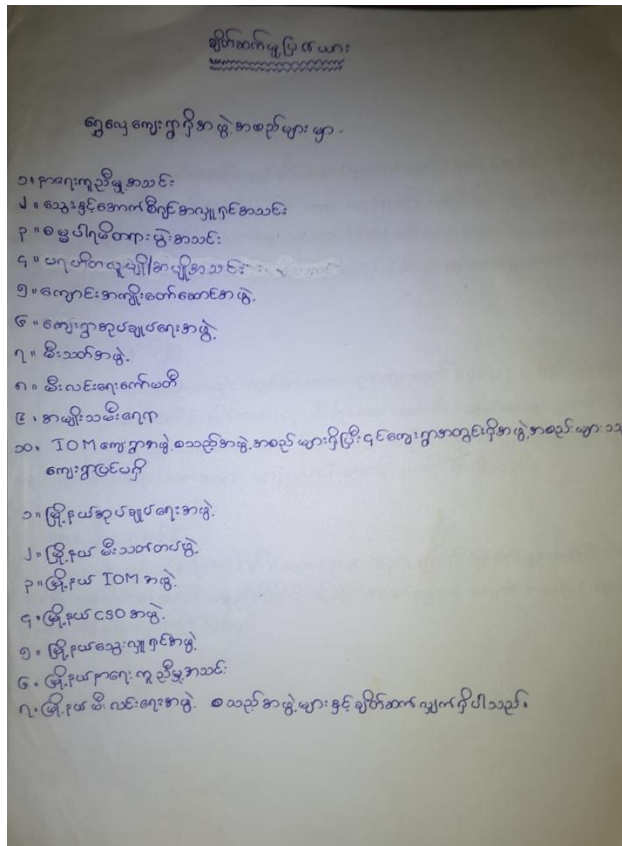 ချိတ်ဆက်မှုပြဇယား
ရွှေလှေကျေးရွာရှိအဖွဲ့အစည်းများမှာ-
၁။ နာရေးကူညီမှုအသင်း
၂။ သွေးနှင့်အောက်စီဂျင်အလှူရှင်အသင်း
၃။ ဓမ္မပါရမီတရားပွဲအသင်း
၄။ ပရဟိတလူပျို/အပျိုအသင်း
၅။ ကျောင်းအကျိုးတော်ဆောင်အဖွဲ့
၆။ ကျေးရွာအုပ်ချုပ်ရေးအဖွဲ့
၇။ မီးသတ်အဖွဲ့
၈။ မီးလင်းရေးကော်မတီ
၉. အမျိုးသမီးရေးရာ
၁၀. IOM ကျေးရွာအဖွဲ့ စသည့်အဖွဲ့အစည်းများရှိပြီး ၎င်းကျေးရွာအတွင်းရှိအဖွဲ့အစည်းများသည်
ကျေးရွာပြင်ပရှိ
၁။ မြို့နယ်အုပ်ချုပ်ရေးအဖွဲ့
၂။ မြို့နယ် မီးသတ်တပ်ဖွဲ့
၃။ မြို့နယ် IOM အဖွဲ့
၄. မြို့နယ် CSO အဖွဲ့
၅။ မြို့နယ်သွေးလှူရှင်အဖွဲ့
၆. မြို့နယ်နာရေးကူညီမှုအသင်း
၇. မြို့နယ်မီးလင်းရေးအဖွဲ့ စသည့်အဖွဲ့များနှင့်ချိတ်ဆက်လျှက်ရှိပါသည်။